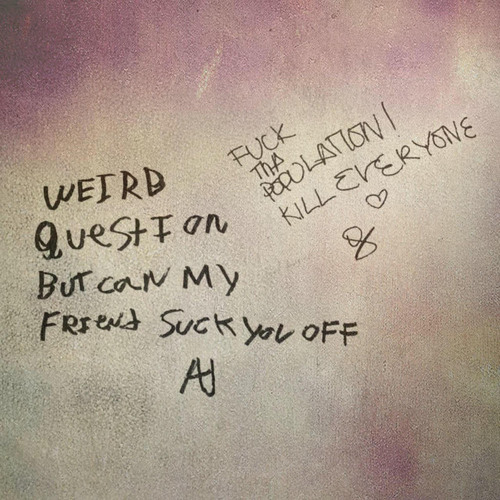 WEIRD
QUestIon
BUT CaN MY
FRIEnd SUCK YOU OFF
AJ
FUCK
THA
POPULATION!
KILL EVERYONE
♡